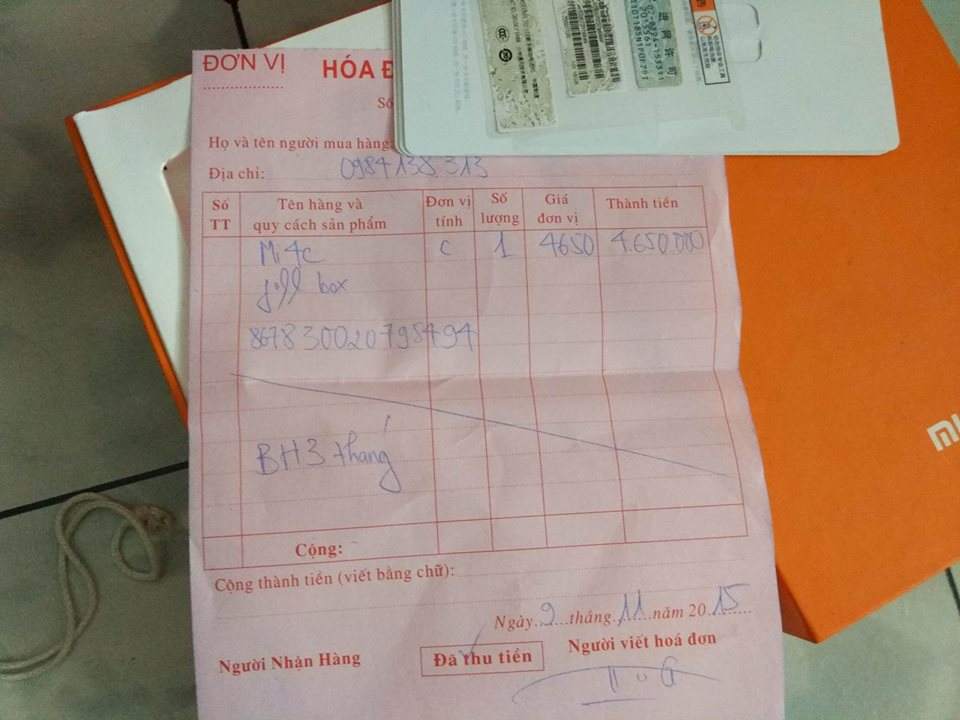 ĐƠN VỊ
HÓA Đ
Số
Họ và tên người mua hàng:
Địa chỉ: 0984 138 313
Số TT
Tên hàng và quy cách sản phẩm
Đơn vị tính
Số lượng
Giá đơn vị
Thành tiền
Mi 4c c 1 4650 4.650.000
full box
867830020798494
BH 3 tháng
Cộng:
Cộng thành tiền (viết bằng chữ):
Ngày 9 tháng 11 năm 20 15
Người Nhận Hàng
Đã thu tiền
Người viết hoá đơn
mi